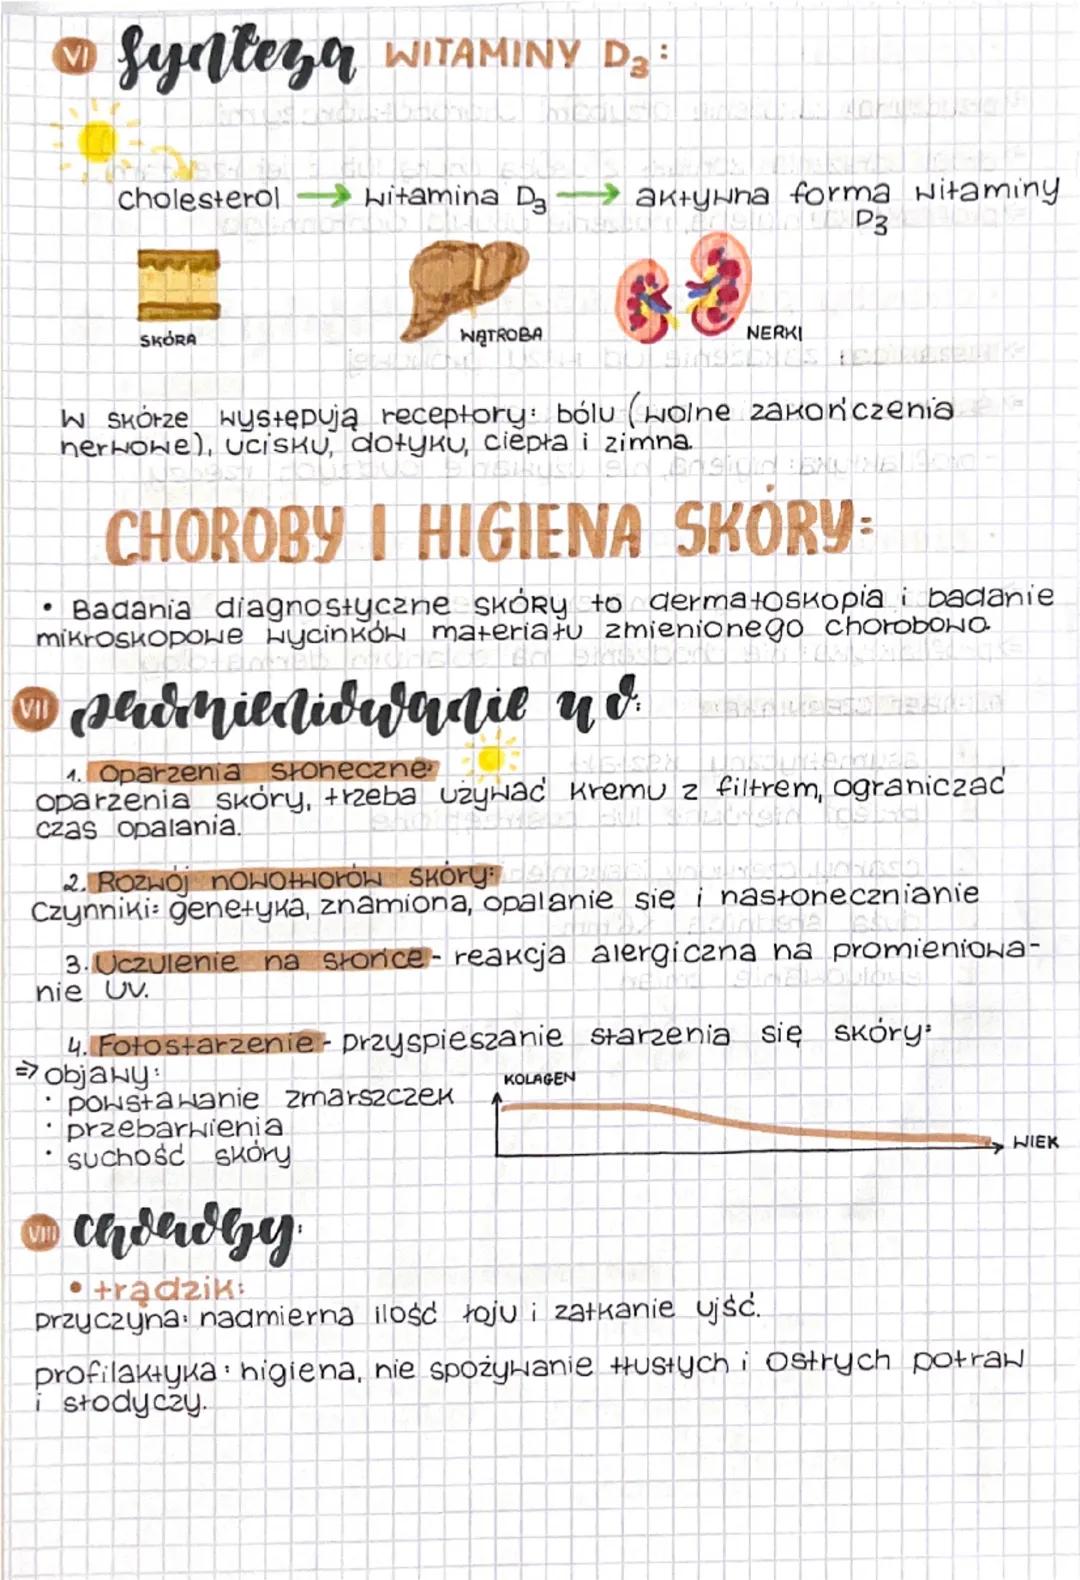 VI Synteza WITAMINY D3:
cholesterol → witamina D3 → aktywna forma witaminy
D3
SKÓRA
WĄTROBA
NERKI
W skórze występują receptory: bólu (wolne zakończenia
nerwowe), ucisku, dotyku, ciepła i zimna.
CHOROBY I HIGIENA SKÓRY:
• Badania diagnostyczne skóry to dermatoskopia i badanie
mikroskopowe wycinków materiału zmienionego chorobowo.
VII promieniowanie uv:
1. Oparzenia słoneczne:
oparzenia skóry, trzeba używać kremu z filtrem, ograniczać
czas opalania.
2. Rozwój nowotworów skóry:
Czynniki: genetyka, znamiona, opalanie się i nasłonecznianie
3. Uczulenie na słońce - reakcja alergiczna na promieniowa-
nie UV.
4. Fotostarzenie - przyspieszanie starzenia się skóry:
⇒ objawy:
• powstawanie zmarszczek
• przebarwienia
• suchość skóry
KOLAGEN
WIEK
VIII choroby:
• trądzik:
przyczyna: nadmierna ilość łoju i zatkanie ujść.
profilaktyka: higiena, nie spożywanie tłustych i ostrych potraw
i słodyczy.